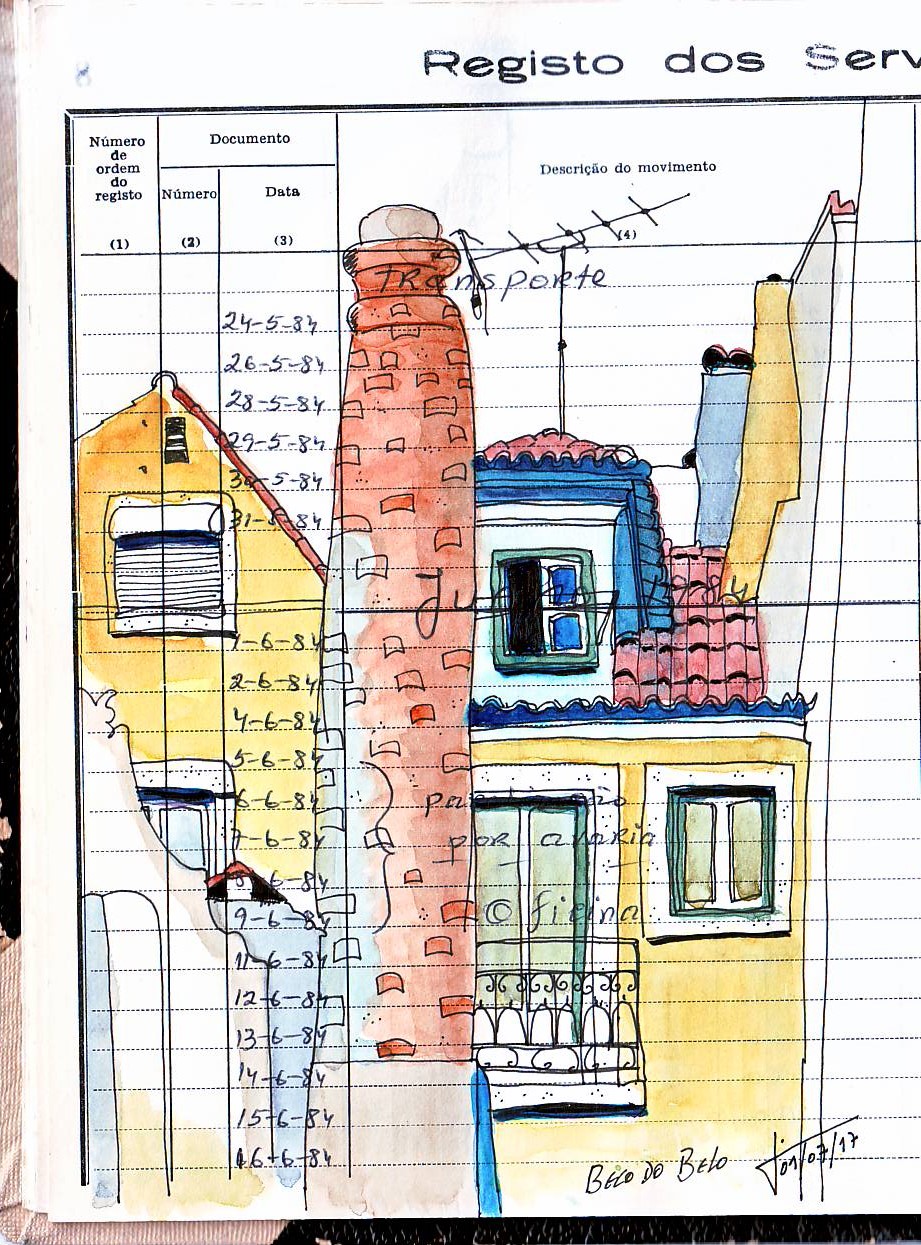 Registo dos Serv
Número de ordem do registo
Documento
Número
Data
Descrição do movimento
(1)
(2)
(3)
(4)
Transporte
24-5-84
26-5-84
28-5-84
29-5-84
30-5-84
31-5-84
1-6-84
2-6-84
4-6-84
5-6-84
6-6-84
7-6-84
por avaria
8-6-84
9-6-84
11-6-84
12-6-84
13-6-84
14-6-84
15-6-84
16-6-84
Beco do Belo
01/07/17